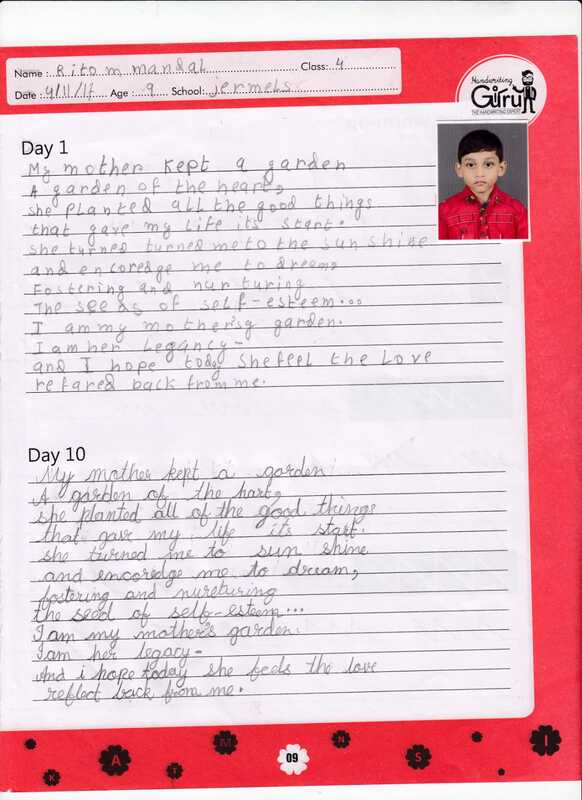 Name : Ritom mandal Class: 4
Date : 4/11/17 Age : 9 School: jermels
Handwriting
Guru
THE HANDWRITING EXPERT
Day 1
My mother kept a garden
A garden of the heart,
she planted all the good things
that gave my life its start.
she turned turned me to the sun shine
and encoredge me to dream,
Fostering and nurturing
The seeds of self-esteem...
I am my mother'sg garden.
I am her legancy-
and I hope today She feel the Love
refared back from me.
Day 10
My mother kept a garden.
A garden of the hart,
she planted all of the good things
that gave my life its start.
she turned me to sun shine
and encoredge me to dream,
fostering and nureturing
the seed of self-esteem...
I am my mother's garden.
I am her legacy-
And i hope today she feels the love
reflect back from me.
K A T M 09 N S I